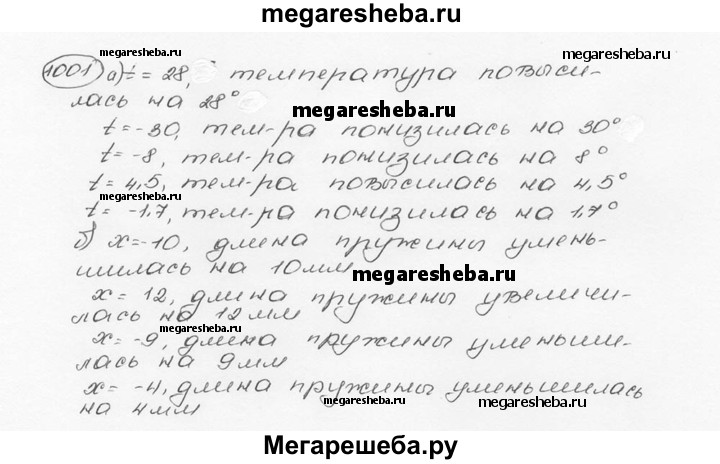 megaresheba.ru
megaresheba.ru
1001 а) t = 28, температура повыси-
лась на 28°
megaresheba.ru
t = -30, тем-ра понизилась на 30°
t = -8, тем-ра понизилась на 8°
t = 4,5, тем-ра повысилась на 4,5°
megaresheba.ru
t = -1,7, тем-ра понизилась на 1,7°
б) x = -10, длина пружины умень-
шилась на 10мм
megaresheba.ru
x = 12, длина пружины увеличи-
лась на 12мм
megaresheba.ru
x = -9, длина пружины уменьши-
лась на 9мм
x = -4, длина пружины уменьшилась
на 4мм
megaresheba.ru
Мегарешеба.ру